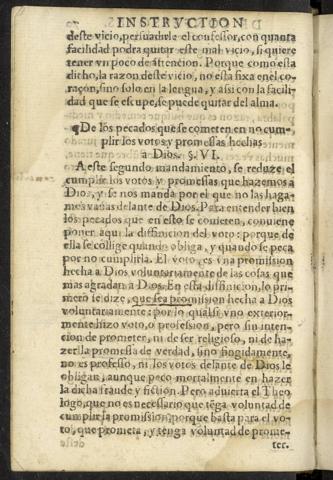 INSTRVCTION
deste vicio, persuadirle el confessor, con quanta
facilidad podra quitar este mal vicio, si quiere
tener vn poco de attencion. Porque como esta
dicho, la razon deste vicio, no esta fixa enel co-
raçon, sino solo en la lengua, y assi con la facili-
dad que se escupe, se puede quitar del alma.
¶De los pecados que se cometen en no cum-
plir los votos y promessas hechas
a Dios. §. VI.
A este segundo mandamiento, se reduze, el
cumplir los votos y promessas que hazemos a
Dios, y se nos manda por el que no las haga-
mos vanas delante de Dios. Para entender bien
los pecados que en esto se cometen, conuiene
poner aqui la diffinicion del voto: porque de
ella se collige quando obliga, y quando se peca
por no cumplirla. El voto, es vna promission
hecha a Dios voluntariamente de las cosas que
mas agradan a Dios. En esta diffinicion, lo pri-
mero se dize, que sea promission hecha a Dios
voluntariamente: por lo qual si vno exterior-
mente hizo voto, o profession, pero sin inten-
cion de prometer, ni de ser religioso, ni de ha-
zer la promessa de verdad, sino fingidamente,
no es professo, ni los votos delante de Dios le
obligan, aunque peco mortalmente en hazer
la dicha fraude y fiction. Pero aduierta el Theo
logo, que no es necessario que tēga voluntad de
cumplir la promission, porque basta para el vo-
to, que prometa, y tenga voluntad de prome-
ter.